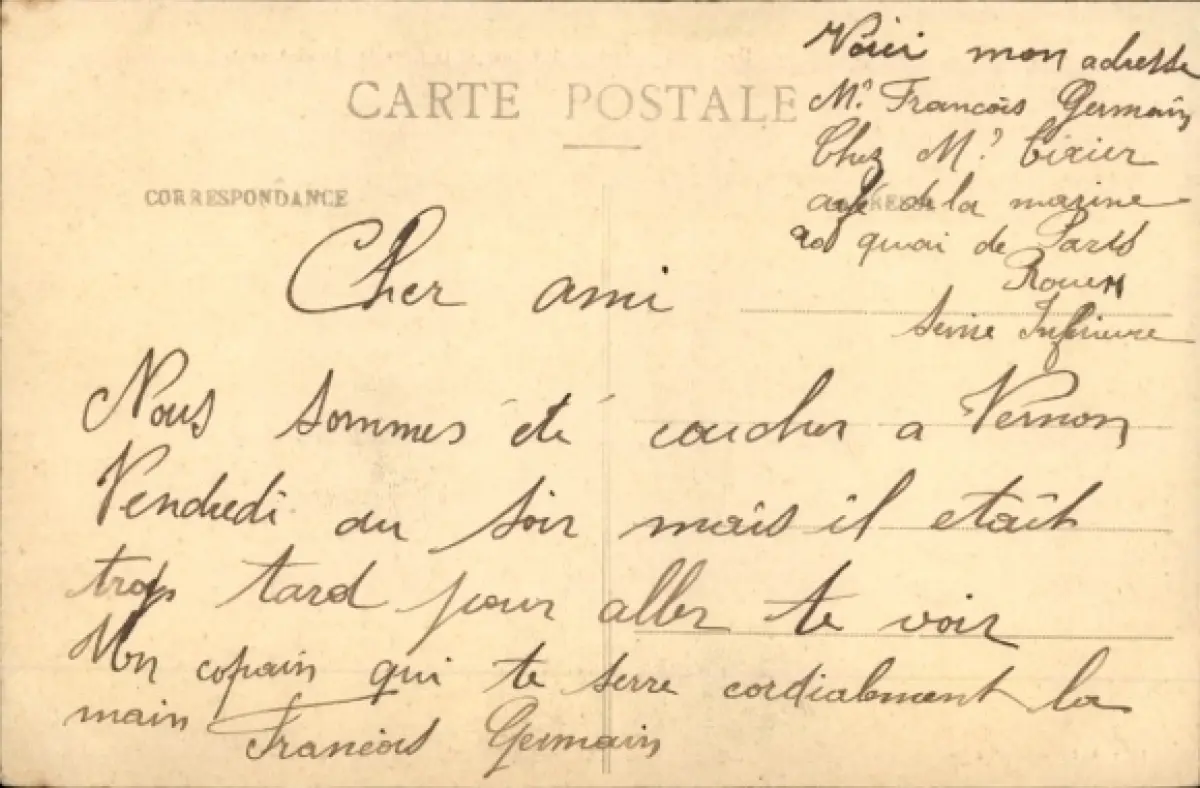 CARTE POSTALE
CORRESPONDANCE
Voici mon adresse
Mr François Germain
Chez Mr Tixier
de la marine
quai de Paris
Rouen
Seine Inférieure
Cher ami
Nous sommes été coucher a Vernon
Vendredi au soir mais il etait
trop tard pour aller te voir
Mon copain qui te serre cordialement la
main François Germain